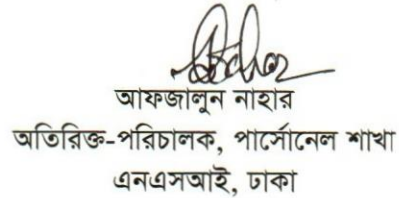 আফজালুন নাহার
অতিরিক্ত-পরিচালক, পার্সোনেল শাখা
এনএসআই, ঢাকা